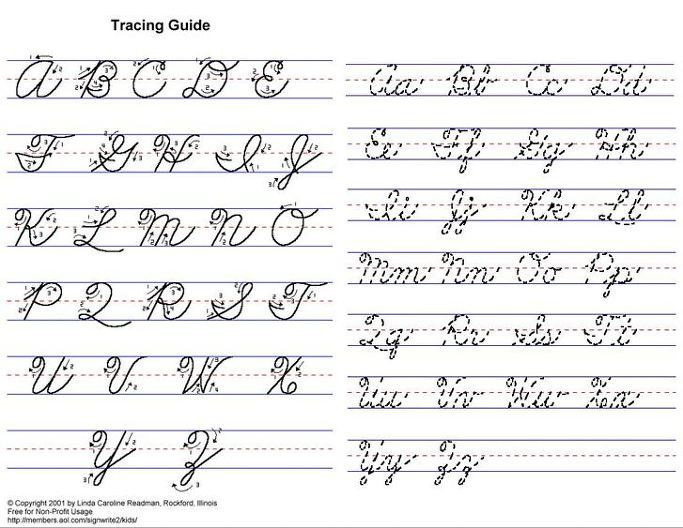 Tracing Guide
A B C D E
F G H I J
K L M N O
P Q R S T
U V W X
Y Z
Aa Bb Cc Dd
Ee Ff Gg Hh
Ii Jj Kk Ll
Mm Nn Oo Pp
Qq Rr Ss Tt
Uu Vv Ww Xx
Yy Zz
© Copyright 2001 by Linda Caroline Readman, Rockford, Illinois
Free for Non-Profit Usage
http://members.aol.com/signwrite2/kids/